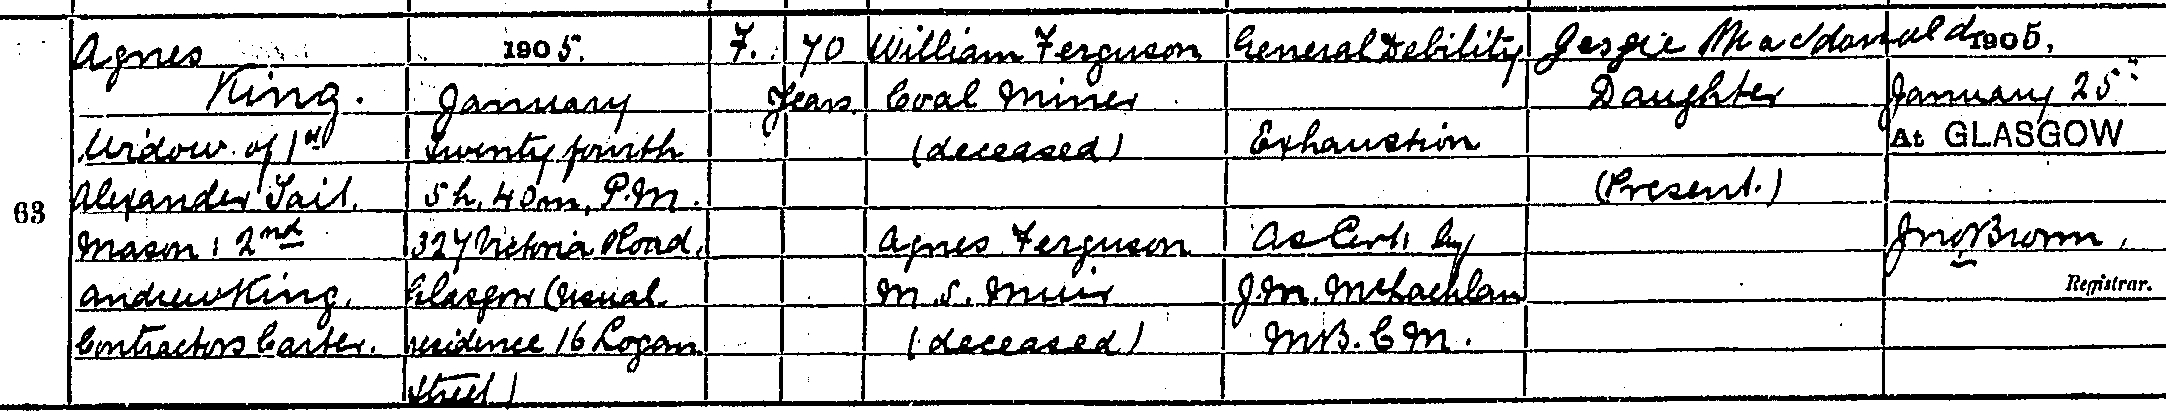 63
Agnes
King.
Widow of 1st
Alexander Tait.
Mason, 2nd
Andrew King.
Contractors Carter.
1905.
January
Twenty fourth
5h. 40m. P.M.
327 Victoria Road,
Glasgow (Usual
residence 16 Logan
Street)
F.
70
Years
William Ferguson
Coal Miner
(deceased)
Agnes Ferguson
M.S. Muir
(deceased)
General Debility
Exhaustion
As Cert. by
J.M. McLachlan
M.B. C.M.
Jessie Macdonald
Daughter
(Present.)
1905,
January 25"
At GLASGOW
Jno Brown,
Registrar.